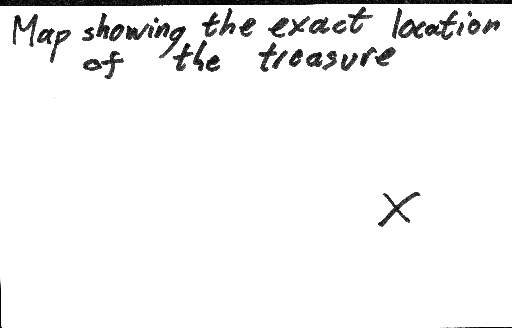 Map showing the exact location
of the treasure
X